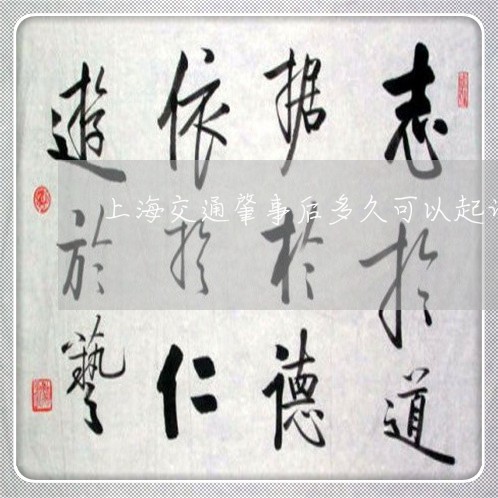 志於道
据於德
依於仁
遊於藝
上海交通肇事后多久可以起